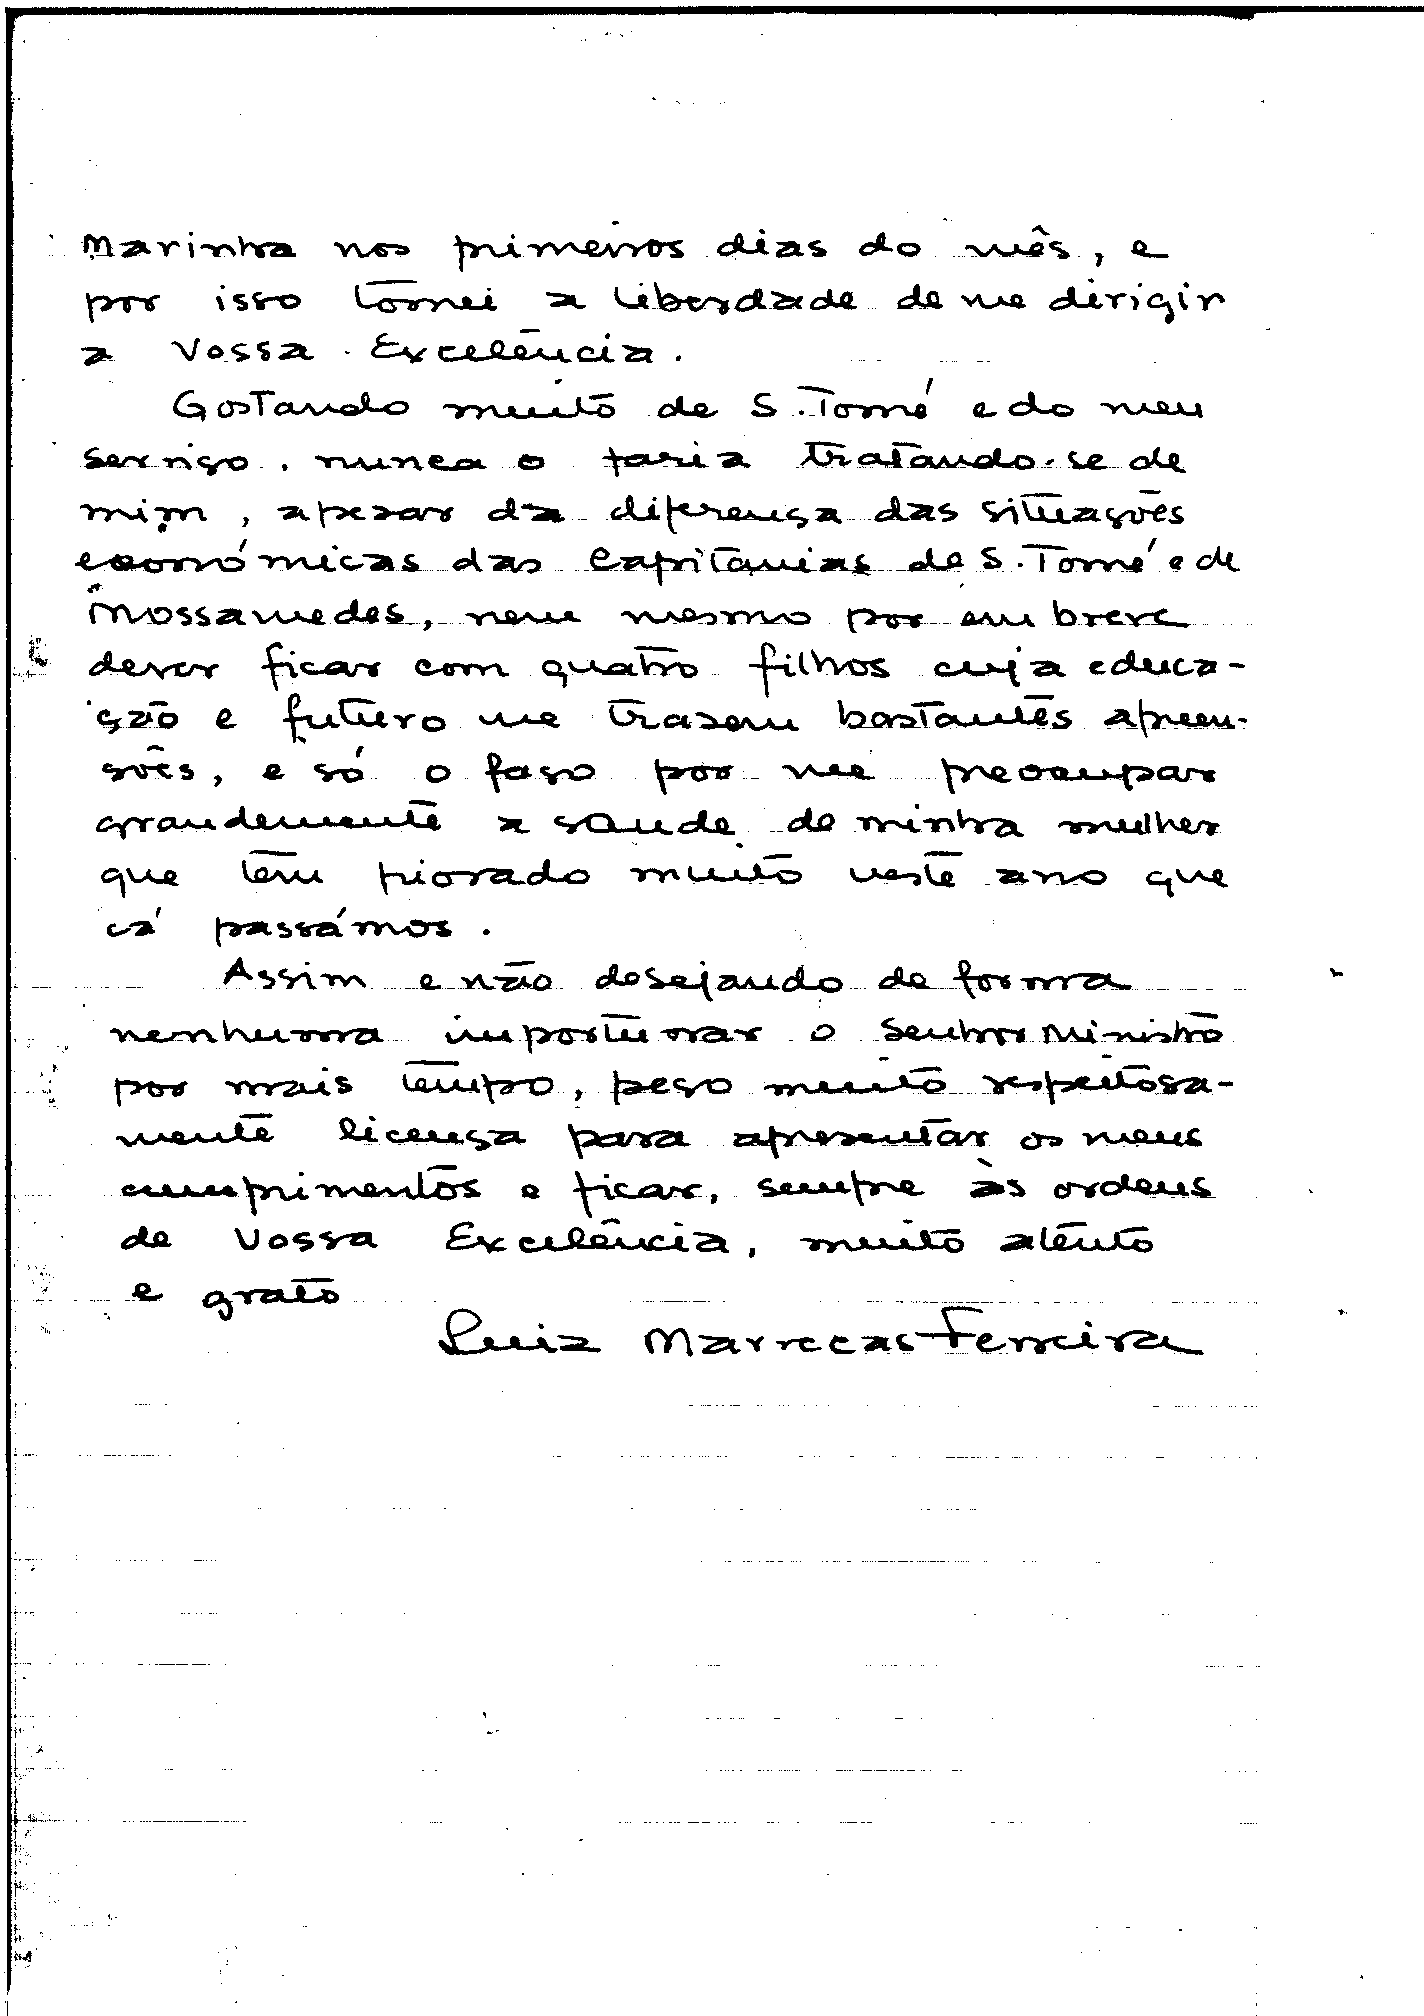 Marinha nos primeiros dias do mês, e
por isso tomei a liberdade de me dirigir
a Vossa Excelência.
Gostando muito de S. Tomé e do meu
serviço, nunca o faria tratando-se de
mim, apesar da diferença das situações
económicas das Capitanias de S. Tomé e de
Mossamedes, nem mesmo por em breve
dever ficar com quatro filhos cuja educa-
ção e futuro me trazem bastantes apreen-
sões, e só o faço por me preocupar
grandemente a saude de minha mulher
que tem piorado muito neste ano que
cá passámos.
Assim e não desejando de forma
nenhuma importunar o Senhor Ministro
por mais tempo, peço muito respeitosa-
mente licença para apresentar os meus
cumprimentos e ficar, sempre às ordens
de Vossa Excelência, muito atento
e grato
Luiz Marrecas Ferreira